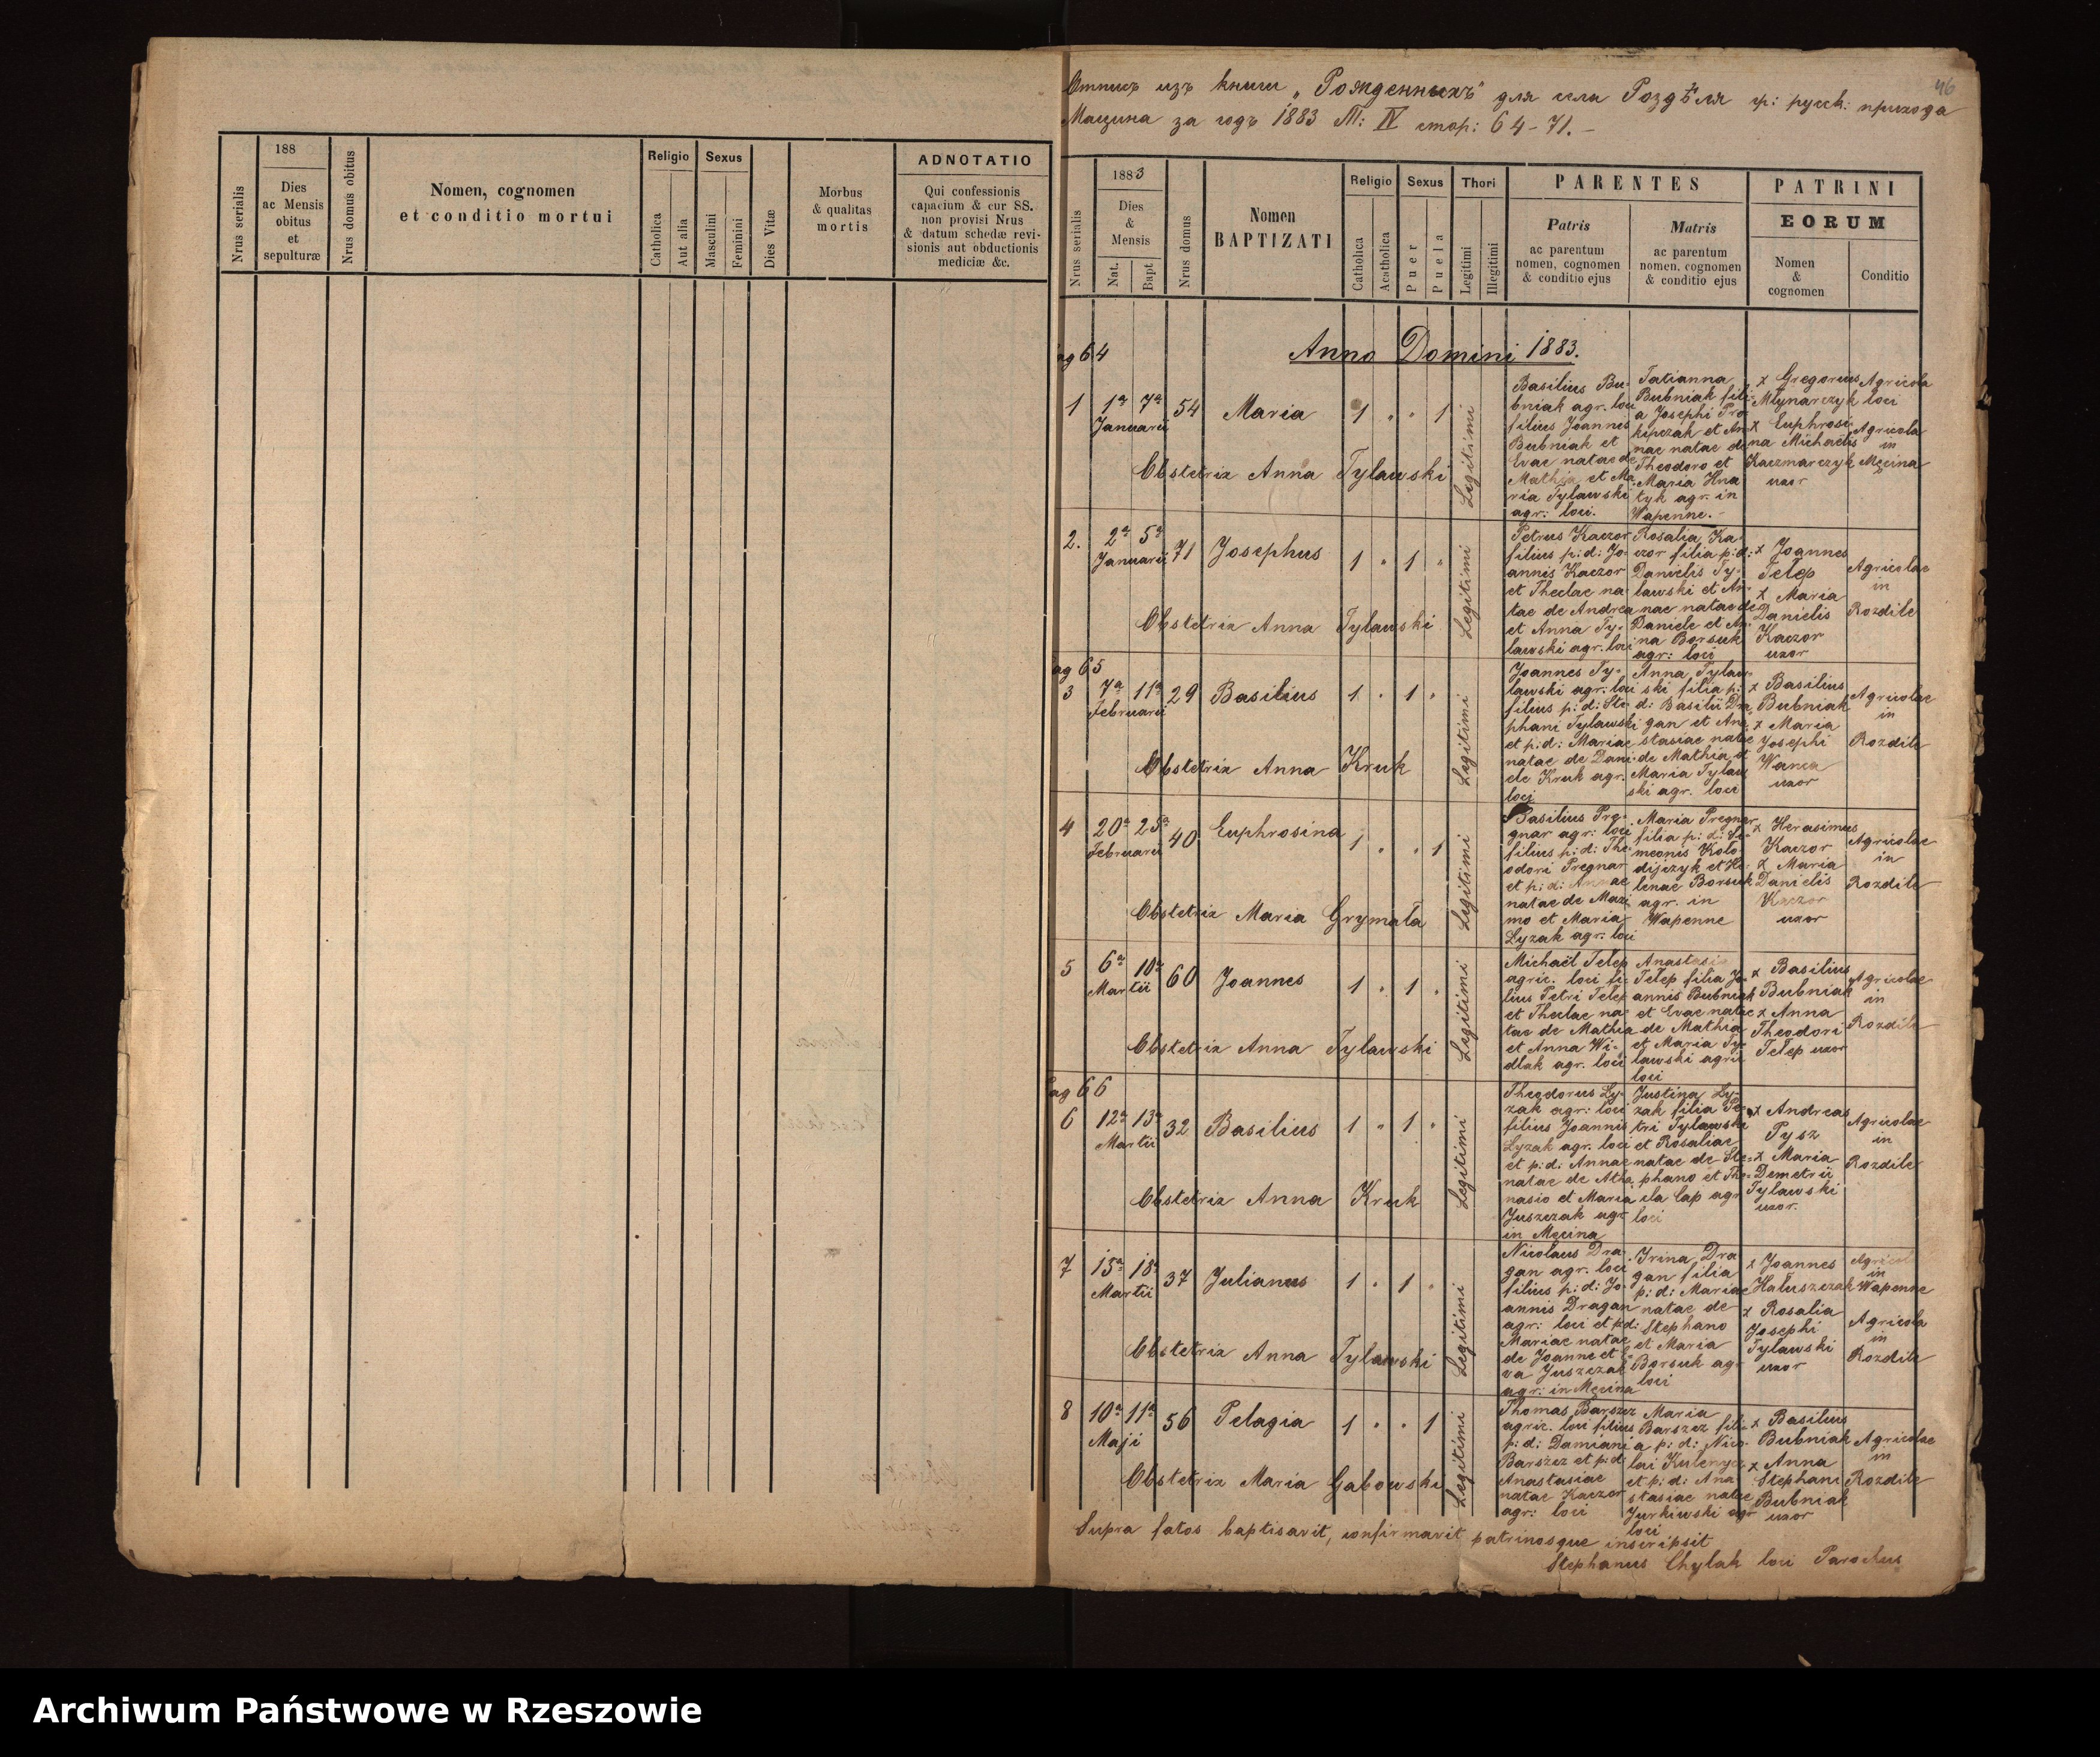 188
Nrus serialis
Dies
ac Mensis
obitus
et
sepulturæ
Nrus domus obitus
Nomen, cognomen
et conditio mortui
Religio
Catholica
Aut alia
Sexus
Masculini
Feminini
Dies Vitæ
Morbus
& qualitas
mortis
ADNOTATIO
Qui confessionis
capacium & cur SS.
non provisi Nrus
& datum schedæ revi-
sionis aut obductionis
mediciæ &c.
46
Отпись изъ книги „Рожденныхъ" для села Роздѣля гр: русск: прихода
Мацина за годъ 1883 Т: IV стор: 64-71.-
Nrus serialis
1883
Dies
&
Mensis
Nat.
Bapt
Nrus domus
Nomen
BAPTIZATI
Religio
Catholica
Acatholica
Sexus
Puer
Puela
Thori
Legitimi
Illegitimi
PARENTES
Patris
ac parentum
nomen, cognomen
& conditio ejus
Matris
ac parentum
nomen, cognomen
& conditio ejus
PATRINI
EORUM
Nomen
&
cognomen
Conditio
ag 64
Anno Domini 1883.
1
1ª 7ª
Januarii
54
Maria
1 " " 1
Legitimi
Basilius Bu-
bniak agr. loci
filius Joannis
Bubniak et
Evae natae de
Mathia et Ma-
ria Tylawski
agr: loci.
Tatianna
Bubniak fili-
a Josephi Pro-
kipczak et An-
nae natae de
Theodoro et
Maria Hna
tyk agr. in
Wapenne.-
x Gregorius
Młynarczyk
x Euphrosi-
na Michaelis
Kaczmarczyk
uxor
Agricola
loci
Agricola
in
Męcina
Obstetrix Anna Tylawski
2.
2ª 5ª
Januarii
71
Josephus
1 " 1 "
Legitimi
Petrus Kaczor
filius p: d: Jo-
annis Kaczor
et Theclae na-
tae de Andrea
et Anna Ty-
lawski agr. loci
Rosalia Ka-
czor filia p: d:
Danielis Ty-
lawski et An-
nae natae de
Daniele et An-
na Borsuk
agr: loci
x Joannes
Telep
x Maria
Danielis
Kaczor
uxor
Agricolae
in
Rozdile
Obstetrix Anna Tylawski
ag 65
3
7ª 11ª
Februarii
29
Basilius
1 " 1 "
Legitimi
Joannes Ty-
lawski agr. loci
filius p: d: Ste-
phani Tylawski
et p: d: Mariae
natae de Dani-
ele Kruk agr.
loci
Anna Tylaw-
ski filia p:
d: Basilii Dra
gan et Ana-
stasiae natae
de Mathia et
Maria Tylaw
ski agr. loci
x Basilius
Bubniak
x Maria
Josephi
Wanca
uxor
Agricolae
in
Rozdile
Obstetrix Anna Kruk
4
20ª 25ª
Februarii
40
Euphrosina
1 " " 1
Legitimi
Basilius Pre-
gnar agr: loci
filius p: d: The-
odori Pregnar
et p: d: Annae
natae de Maxi
mo et Maria
Lyzak agr: loci
Maria Pregnar
filia p: d: Si-
meonis Koło-
dijczyk et He-
lenae Borsuk
agr. in
Wapenne
x Herasimus
Kaczor
x Maria
Danielis
Kaczor
uxor
Agricolae
in
Rozdile
Obstetrix Maria Grymała
5
6ª 10ª
Martii
60
Joannes
1 " 1 "
Legitimi
Michaël Telep
agric. loci fi-
lius Petri Telep
et Theclae na-
tae de Mathia
et Anna Wi-
dlak agr. loci
Anastasia
Telep filia Jo-
annis Bubniak
et Evae natae
de Mathia
et Maria Ty-
lawski agric
loci
x Basilius
Bubniak
x Anna
Theodori
Telep uxor
Agricolae
in
Rozdile
Obstetrix Anna Tylawski
Pag 66
6
12ª 13ª
Martii
32
Basilius
1 " 1 "
Legitimi
Theodorus Ly-
zak agr: loci
filius Joannis
Lyzak agr. loci
et p: d: Annae
natae de Atha
nasio et Maria
Juszczak agr
in Męcina
Justina Ly-
zak filia Pe-
tri Tylawski
et Rosaliae
natae de Ste-
phano et The-
cla Cap agr
loci
x Andreas
Pysz
x Maria
Demetrii
Tylawski
uxor.
Agricolae
in
Rozdile
Obstetrix Anna Kruk
7
15ª 18ª
Martii
37
Julianus
1 " 1 "
Legitimi
Nicolaus Dra-
gan agr. loci
filius p: d: Jo-
annis Dragan
agr: loci et p: d:
Mariae natae
de Joanne et E-
va Juszczak
agr: in Męcina
Irina Dra
gan filia
p: d: Mariae
natae de
Stephano
et Maria
Borsuk agr
loci
x Joannes
Haluszczak
x Rosalia
Josephi
Tylawski
uxor
Agricola
in
Wapenne
Agricola
in
Rozdile
Obstetrix Anna Tylawski
8
10ª 11ª
Maji
56
Pelagia
1 " " 1
Legitimi
Thomas Barszcz
agric. loci filius
p: d: Damiani
Barszcz et p: d:
Anastasiae
natae Kaczor
agr: loci
Maria
Barszcz fili-
a p: d: Nico-
lai Kulenycz
et p: d: Ana
stasiae natae
Jurkiwski agr
loci
x Basilius
Bubniak
x Anna
Stephani
Bubniak
uxor
Agricolae
in
Rozdile
Obstetrix Maria Gabowski
Supra fatos baptisavit, confirmavit patrinosque inscripsit
Stephanus Chylak loci Parochus
Archiwum Państwowe w Rzeszowie